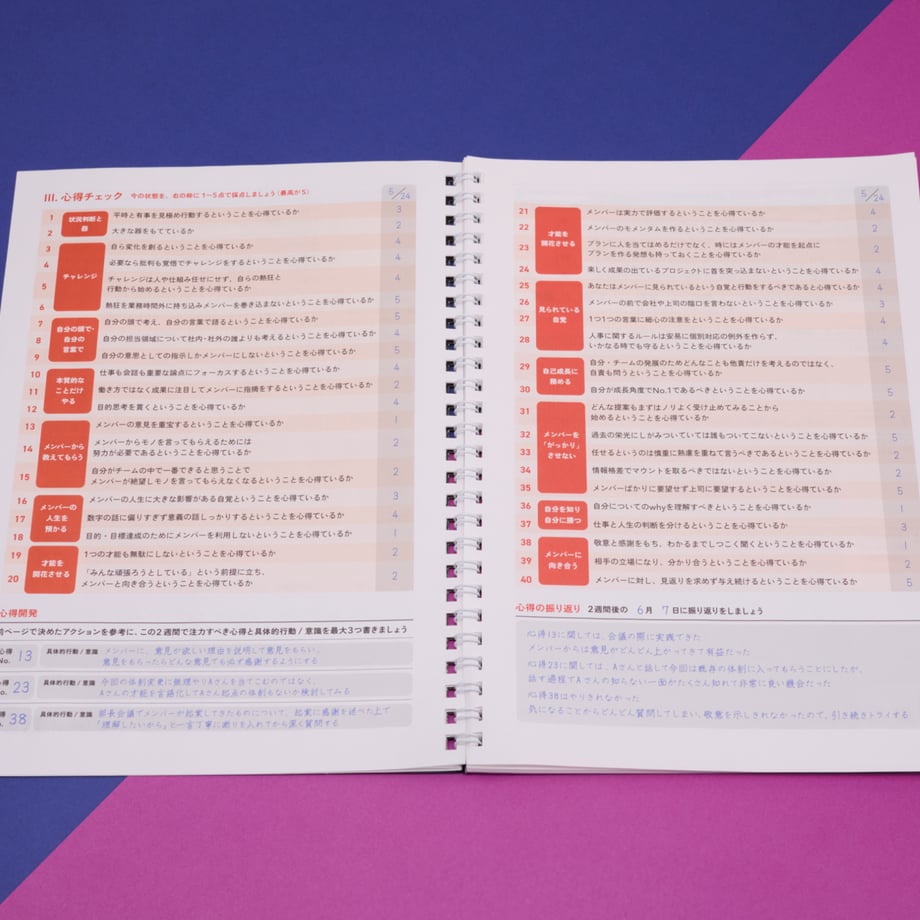 III. 心得チェック 今の状態を、右の枠に1~5点で採点しましょう（最高が5）
5/24
状況判断と器
1 平時と有事を見極め行動するということを心得ているか 3
2 大きな器をもてているか 2
チャレンジ
3 自ら変化を創るということを心得ているか 4
4 必要なら批判も覚悟でチャレンジをするということを心得ているか 4
5 チャレンジは人や仕組み任せにせず、自らの熱狂と
行動から始めるということを心得ているか 4
6 熱狂を業務時間外に持ち込みメンバーを巻き込まないということを心得ているか 5
自分の頭で、自分の言葉で
7 自分の頭で考え、自分の言葉で語るということを心得ているか 5
8 自分の担当領域について社内・社外の誰よりも考えるということを心得ているか 4
9 自分の意思としての指示しかメンバーにしないということを心得ているか 5
本質的なことだけやる
10 仕事も会話も重要な論点にフォーカスするということを心得ているか 4
11 働き方ではなく成果に注目してメンバーに指摘をするということを心得ているか 2
12 目的思考を貫くということを心得ているか 4
メンバーから教えてもらう
13 メンバーの意見を重宝するということを心得ているか 1
14 メンバーからモノを言ってもらえるためには
努力が必要であるということを心得ているか 2
15 自分がチームの中で一番できると思うことで
メンバーが絶望しモノを言ってもらえなくなるということを心得ているか 2
メンバーの人生を預かる
16 メンバーの人生に大きな影響がある自覚ということを心得ているか 3
17 数字の話に偏りすぎず意義の話しっかりするということを心得ているか 4
18 目的・目標達成のためにメンバーを利用しないということを心得ているか 1
才能を開花させる
19 1つの才能も無駄にしないということを心得ているか 2
20 「みんな頑張ろうとしている」という前提に立ち、
メンバーと向き合うということを心得ているか 2
心得開発
前ページで決めたアクションを参考に、この2週間で注力すべき心得と具体的行動/意識を最大3つ書きましょう
心得No. 13 具体的行動/意識 メンバーに、意見が欲しい理由を説明して意見をもらい、
意見をもらったらどんな意見でも必ず感謝するようにする
心得No. 23 具体的行動/意識 今回の体制変更に無理やりAさんを当てこむのではなく、
Aさんの才能を言語化してAさん起点の体制もないか検討してみる
心得No. 38 具体的行動/意識 部長会議でメンバーが起案してきたものについて、起案に感謝を述べた上で
「理解したいから」と一言丁寧に断りを入れてから深く質問する
5/24
才能を開花させる
21 メンバーは実力で評価するということを心得ているか 4
22 メンバーのモメンタムを作るということを心得ているか 2
23 プランに人を当てはめるだけでなく、時にはメンバーの才能を起点に
プランを作る発想も持っておくことを心得ているか 2
24 楽しく成果の出ているプロジェクトに首を突っ込まないということを心得ているか 4
見られている自覚
25 あなたはメンバーに見られているという自覚と行動をするべきであると心得ているか 4
26 メンバーの前で会社や上司の陰口を言わないということを心得ているか 3
27 1つ1つの言葉に細心の注意をということを心得ているか 4
28 人事に関するルールは安易に個別対応の例外を作らず、
いかなる時でも守るということを心得ているか 4
自己成長に務める
29 自分・チームの発展のためどんなことも他責だけを考えるのではなく、
自責も問うということを心得ているか 5
30 自分が成長角度でNo.1であるべきということを心得ているか 5
メンバーを「がっかり」させない
31 どんな提案もまずはノリよく受け止めてみることから
始めるということを心得ているか 2
32 過去の栄光にしがみついていては誰もついてこないということを心得ているか 5
33 任せるというのは慎重に熟慮を重ねて言うべきであるということを心得ているか 2
34 情報格差でマウントを取るべきではないということを心得ているか 2
35 メンバーばかりに要望せず上司に要望するということを心得ているか 5
自分を知り自分に勝つ
36 自分についてのwhyを理解すべきということを心得ているか 1
37 仕事と人生の判断を分けるということを心得ているか 3
メンバーに向き合う
38 敬意と感謝をもち、わかるまでしつこく聞くということを心得ているか 1
39 相手の立場になり、分かり合うということを心得ているか 2
40 メンバーに対し、見返りを求めず与え続けるということを心得ているか 5
心得の振り返り 2週間後の 6月 7日に振り返りをしましょう
心得13に関しては、会議の際に実践できた
メンバーからは意見がどんどん上がってきて有益だった
心得23に関しては、Aさんと話して今回は既存の体制に入ってもらうことにしたが、
話す過程でAさんの知らない一面がたくさん知れて非常に良い機会だった
心得38はやりきれなかった
気になることからどんどん質問してしまい、敬意を示しきれなかったので、引き続きトライする